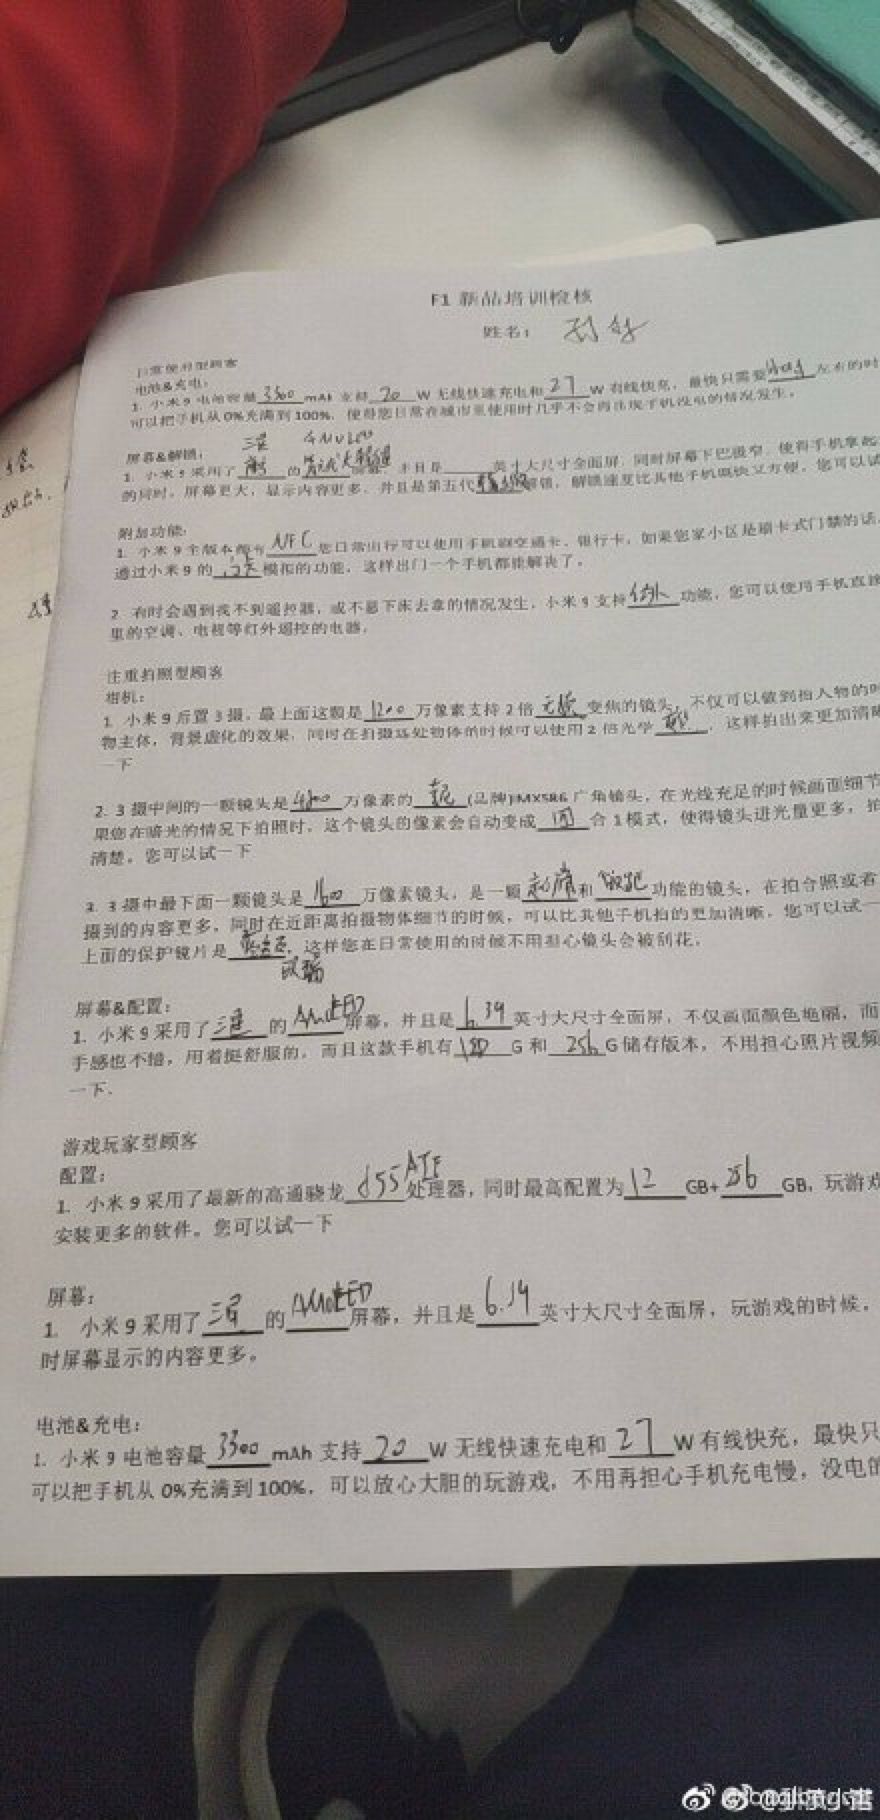 F1 新品培训检核
姓名：
日常使用型顾客
电池&充电：
1. 小米 9 电池容量 3300 mAh 支持 20 W 无线快速充电和 27 W 有线快充，最快只需要 左右的时
可以把手机从 0%充满到 100%，使得您日常在城市里使用时几乎不会再出现手机没电的情况发生。
屏幕&解锁：
三星 AMOLED
1. 小米 9 采用了 的 屏幕，并且是 英寸大尺寸全面屏，同时屏幕下巴极窄，使得手机拿起
的同时，屏幕更大，显示内容更多，并且是第五代 解锁，解锁速度比其他手机既快又方便，您可以试
附加功能：
1. 小米 9 全版本都有 NFC 您日常出行可以使用手机刷交通卡、银行卡，如果您家小区是刷卡式门禁的话，
通过小米 9 的 门卡 模拟的功能，这样出门一个手机都能解决了。
2. 有时会遇到找不到遥控器，或不愿下床去拿的情况发生，小米 9 支持 红外 功能，您可以使用手机直接
里的空调、电视等红外遥控的电器。
注重拍照型顾客
相机：
1. 小米 9 后置 3 摄，最上面这颗是 1200 万像素支持 2 倍 无损 变焦的镜头，不仅可以做到拍人物的时
物主体，背景虚化的效果，同时在拍摄远处物体的时候可以使用 2 倍光学 ，这样拍出来更加清晰
一下
2. 3 摄中间的一颗镜头是 4800 万像素的 索尼 (品牌)IMX586 广角镜头，在光线充足的时候画面细节
果您在暗光的情况下拍照时，这个镜头的像素会自动变成 四 合 1 模式，使得镜头进光量更多，拍
清楚。您可以试一下
3. 3 摄中最下面一颗镜头是 1600 万像素镜头，是一颗 超广角 和 微距 功能的镜头，在拍合照或者
摄到的内容更多，同时在近距离拍摄物体细节的时候，可以比其他手机拍的更加清晰。您可以试一
上面的保护镜片是 蓝宝石 ，这样您在日常使用的时候不用担心镜头会被刮花。
玻璃
屏幕&配置：
1. 小米 9 采用了 三星 的 AMOLED 屏幕，并且是 6.39 英寸大尺寸全面屏，不仅画面颜色艳丽，而
手感也不错，用着挺舒服的，而且这款手机有 128 G 和 256 G 储存版本，不用担心照片视频
一下.
游戏玩家型顾客
配置：
1. 小米 9 采用了最新的高通骁龙 855 处理器，同时最高配置为 12 GB+ 256 GB，玩游戏
安装更多的软件。您可以试一下
屏幕：
1. 小米 9 采用了 三星 的 AMOLED 屏幕，并且是 6.39 英寸大尺寸全面屏，玩游戏的时候，
时屏幕显示的内容更多。
电池&充电：
1. 小米 9 电池容量 3300 mAh 支持 20 W 无线快速充电和 27 W 有线快充，最快只
可以把手机从 0%充满到 100%，可以放心大胆的玩游戏，不用再担心手机充电慢，没电的